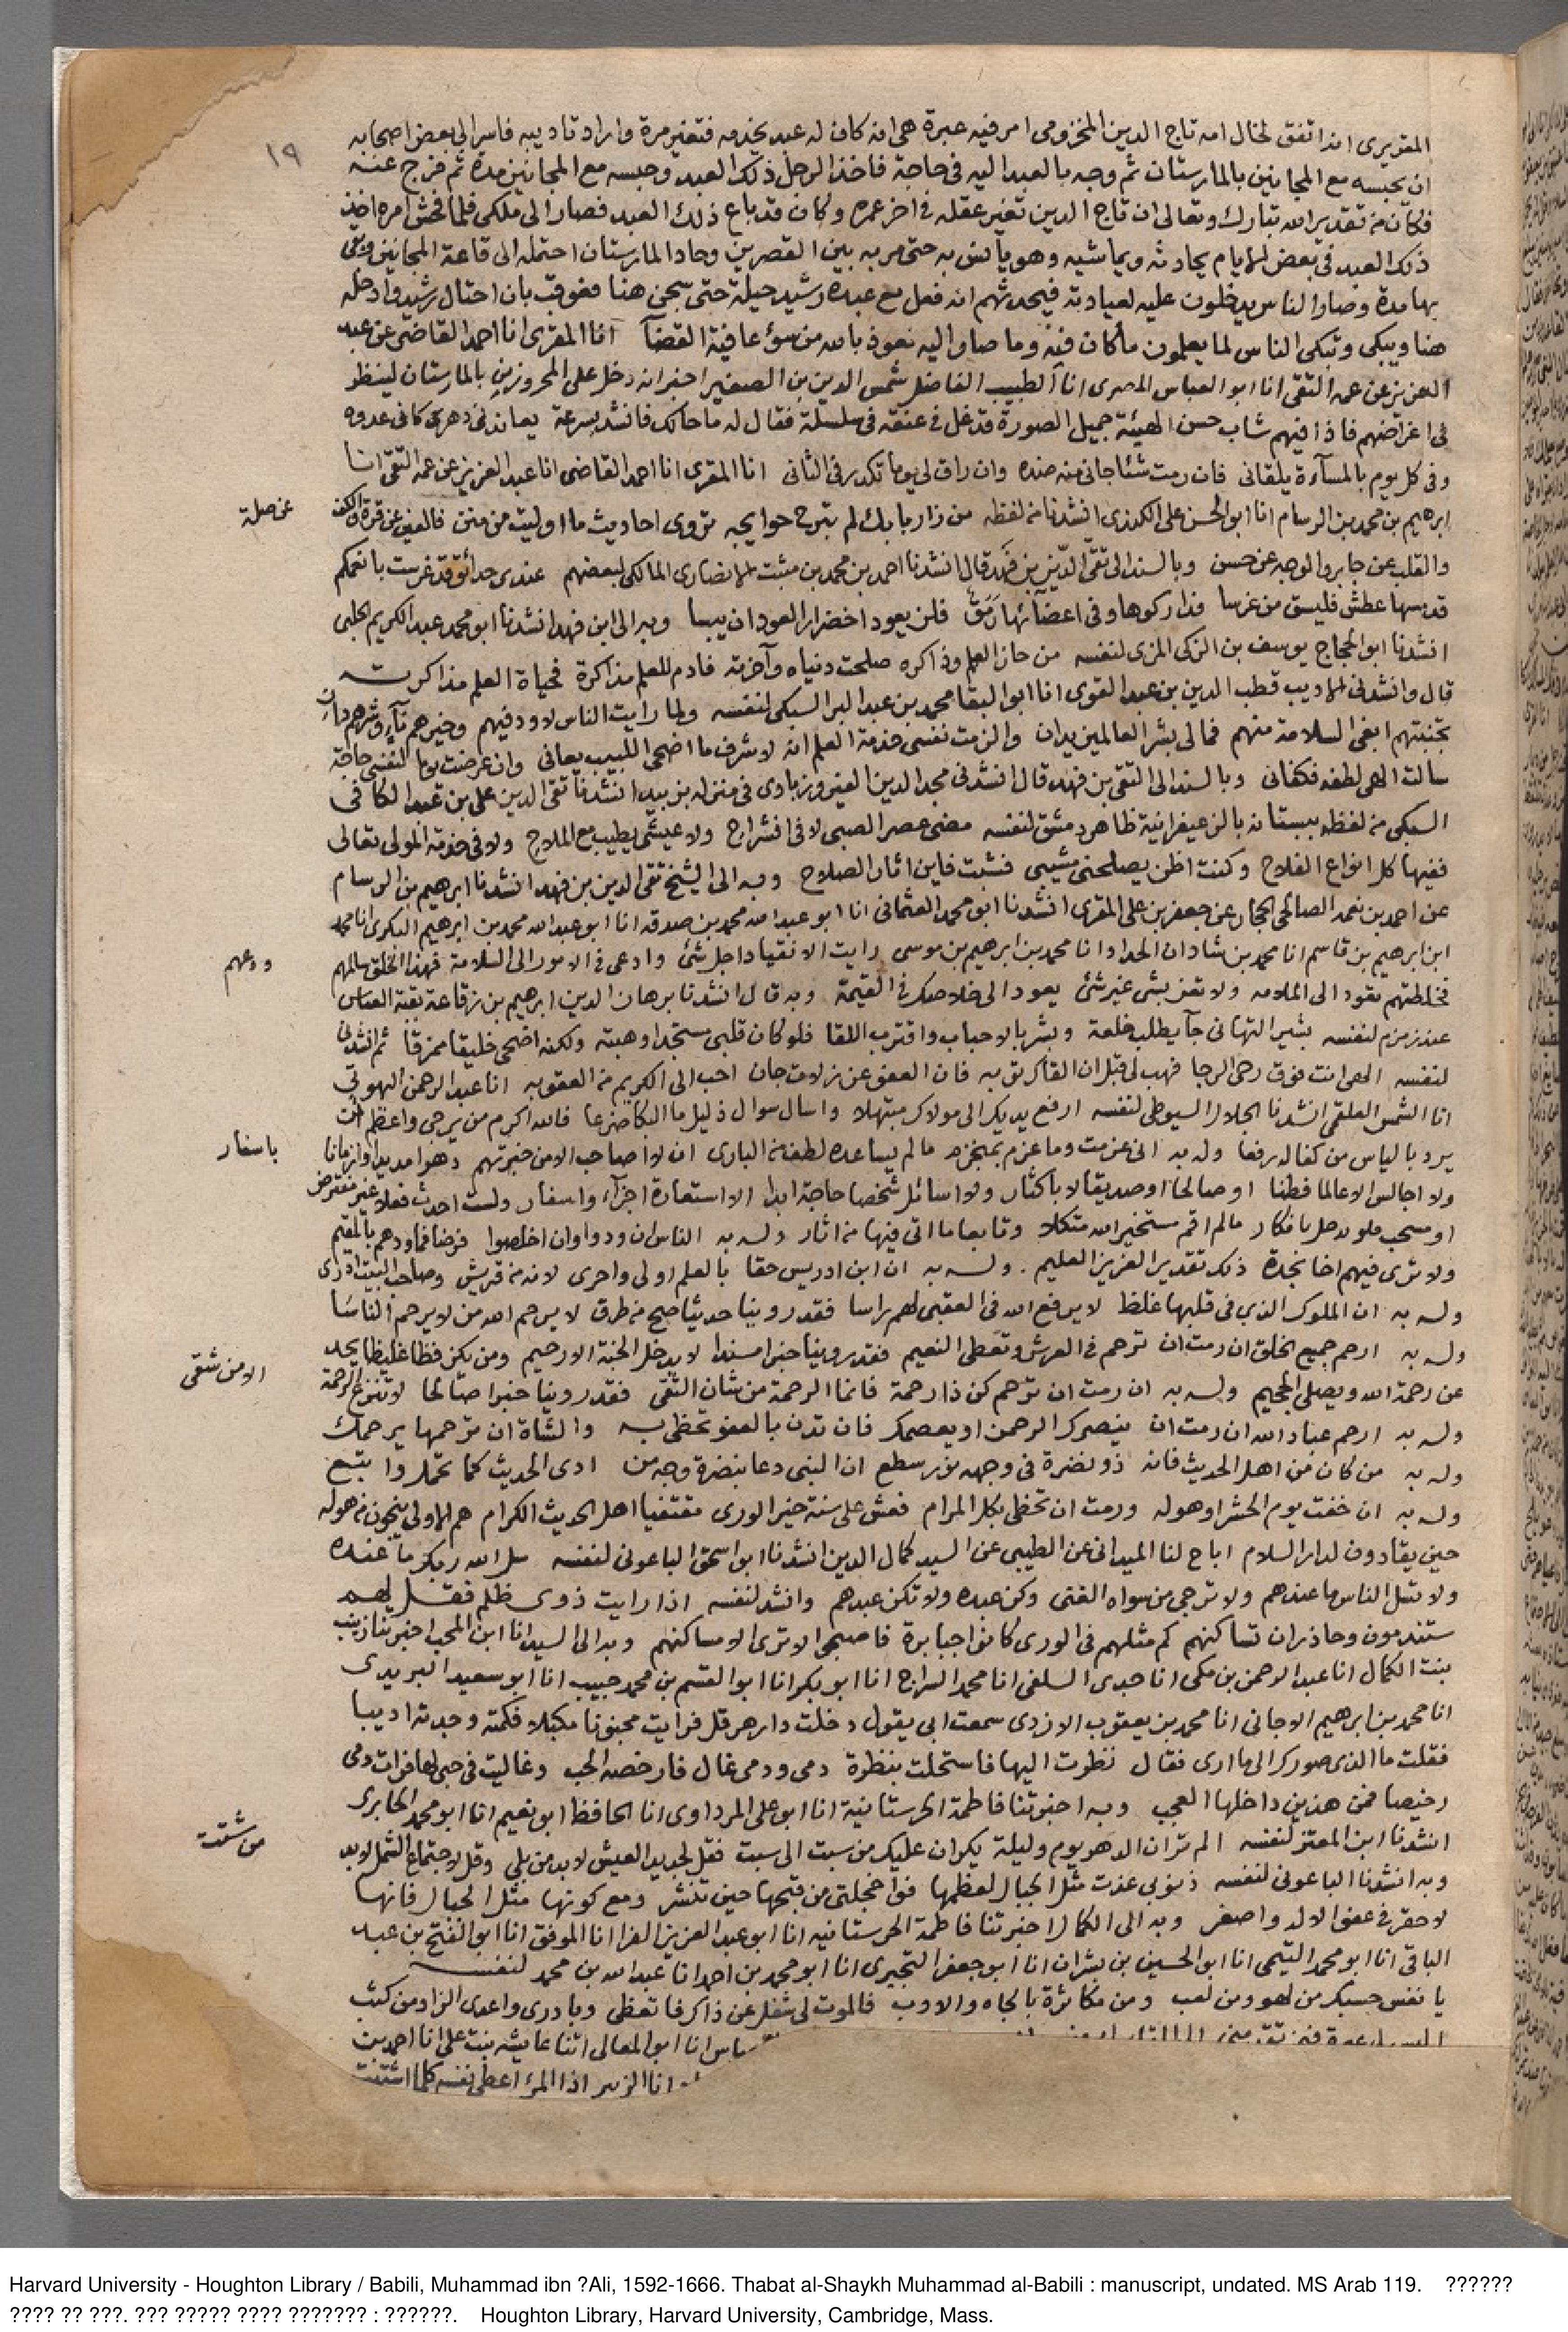 ١٩
المقريزى انه اتفق لخال امه تاج الدين المخزومى امر فيه عبرة هى انه كان له عبد يخدمه فتغير مرة واراد تاديبه فاسر الى بعض اصحابه
ان يحبسه مع المجانين بالمارستان ثم وجه بالعبد اليه فى حاجة فاخذ الرجل ذلك العبد وحبسه مع المجانين مدة ثم فرج عنه
فكان من تقدير الله تبارك وتعالى ان تاج الدين تغير عقله فى اخر عمره وكان قد باع ذلك العبد فصار الى ملكى فلما فحش امره اخذ
ذلك العبد فى بعض الايام يحادثه ويماشيه وهو يأنس به حتى مر به بين القصرين وحاد المارستان احتمله الى قاعة المجانين وبقى
بها مدة وصار الناس يدخلون عليه لعيادته فيحدثهم انه فعل مع عبده رشيد حيلة حتى سجن هنا فعوقب بان احتال رشيد وادخله
هنا ويبكى وتبكى الناس لما يعلمون ما كان فيه وما صار اليه نعوذ بالله من سوء عافية القضآ انا المقرى انا احمد القاضى عن عبد
العزيز عن عمه التقى انا ابو العباس المصرى انا الطبيب الفاضل شمس الدين بن الصغير اخبر انه دخل على المحرورين بالمارستان لينظر
فى اغراضهم فاذا فيهم شاب حسن الهيئة جميل الصورة قد غل فى عنقه فى سلسلة فقال له ما حالك فانشد بسرعة يعاندنى دهرى كانى عدوه
وفى كل يوم بالمسآءة يلقانى فان رمت شئا جانى منه ضده وان راق لى يوما تكدر فى الثانى انا المقرى انا احمد القاضى انا عبد العزيز عن عمه التقى انا
ابرهيم بن محمد بن الرسام انا ابو الحسن على الكندى انشدنا من لفظه من زار بابك لم تبرح جوارحه تروى احاديث ما اوليت من منن فالعين عن قرة والكف
عن صلة
والقلب عن جابر والوجه عن حسن وبالسند الى تقى الدين بن فهد قال انشدنا احمد بن محمد بن مثبت الانصارى المالكى لبعضهم عندى حدائق قد غرست بانعمكم
قد مسها عطش فليسق من غرسا فتداركوها وفى اعضآئها رمق فلن يعود اخضرار العود ان يبسا وبه الى ابن فهد انشدنا ابو محمد عبد الكريم الحلبى
انشدنا ابو الحجاج يوسف بن الزكى المزى لنفسه من حاز العلم وذاكره صلحت دنياه وآخرته فادم للعلم مذاكرة فحياة العلم مذاكرته
قال وانشدنى الاديب قطب الدين بن عبد القوى انا ابو البقا محمد بن عبد البر السبكى لنفسه ولما رايت الناس لا ود فيهم وخيرهم نآء وشرهم دان
تجنبتهم ابغى السلامة منهم فما لى بشر العالمين يدان والزمت نفسى خدمة العلم انه لاشرف ما اضحى اللبيب يعانى وان عرضت يوما لنفسى حاجة
سالت الهى لطفه فكفانى وبالسند الى التقى بن فهد قال انشدنى مجد الدين الفيروزبادى فى منزله بزبيد انشدنا تقى الدين على بن عبد الكافى
السبكى من لفظه ببستانه بالزعيفرانية ظاهر دمشق لنفسه مضى عصر الصبى لا فى انشراح ولا عيش يطيب مع الملاح ولا فى خدمة المولى تعالى
ففيها كل انواع الفلاح وكنت اظن يصلحنى مشيبى فشبت فاين اثار الصلاح وبه الى الشيخ تقى الدين بن فهد انشدنا ابرهيم بن الرسام
عن احمد بن نعمه الصالحى الحجار عن جعفر بن على المقرى انشدنا ابو محمد العثمانى انا ابو عبد الله محمد بن صدقه انا ابو عبد الله محمد بن ابرهيم البكرى انا محمد
ابن ابرهيم بن قاسم انا محمد بن شادان الحداد انا محمد بن ابرهيم بن موسى رايت الانقياد اجل شئ وادعى فى الامور الى السلامة فهذا الخلق سالمهم
ودعهم
فخلطتهم تقود الى الملامه ولا تعن بشى غير شئ يعود الى خلاصك فى القيمة وبه قال انشدنا برهان الدين ابرهيم بن زقاعة بقبة العباس
عند زمزم لنفسه بشير التهانى جآ يطلب خلعة وبشر بالاحباب واقترب اللقا فلو كان قلبى مستجدا وهبته ولكنه اضحى خليقا ممزقا ثم انشدنى
لنفسه الهى انت فوق رجى الرجا فهب لى قبل ان القاك توبه فان العفو عن زلات جان احب الى الكريم من العقوبه انا عبد الرحمن البهوتى
انا الشمس العلقمى انشدنا الجلال السيوطى لنفسه ارفع يديك الى مولاك مبتهلا واسال سوال ذليل ما البكا ضرعا فالله اكرم من يرجى واعظم ان
يرد بالياس من كفا له رفعا وله به انى عزمت وما عزم بمنجزه ما لم يساعده لطف من البارى ان لا اصاحب الا من خبرتهم دهرا مديدا وازمانا
باسفار
ولا اجالس الا عالما فطنا او صالحا او صديقا لا باكثار ولا اسائل شخصا حاجة ابدا الا استعارة اجزآء واسفار ولست احدث فعلا غير مفترض
او مستحب ولو يدخل بافكار ما لم اقم مستخير الله متكلا وتابعا ما اتى فيها من اثار وله به الناس ان ودوا وان اخلصوا فرضا فما ودهم بالمقيم
ولا ترى فيهم اخا نجدة ذلك تقدير العزيز العليم . وله به ان ابن ادريس حقا بالعلم اولى واحرى لانه من قريش وصاحب البيت ادرى
وله به ان الملوك الذى فى قلبها غلظ لا يرفع الله فى العقبى لهم راسا فقد روينا حديثا صح من طرق لا يرحم الله من لا يرحم الناسا
وله به ارحم جميع الخلق ان رمت ان ترحم فى العرش وتعطى النعيم فقد روينا خبرا مسندا لا يدخل الجنة الا رحيم ومن يكن فظا غليظا يحد
عن رحمة الله ويصلى الجحيم وله به ان رمت ان ترحم كن ذا رحمة فانما الرحمة من شان التقى فقد روينا خبرا صالحا لا تنزع الرحمة
الا من شقى
وله به ارحم عباد الله ان رمت ان ينصرك الرحمن او يعصمك فان تدن بالعفو تحظى به والشاة ان ترحمها يرحمك
وله به من كان من اهل الحديث فانه ذو نضرة فى وجهه نور سطع ان النبى دعا بنضرة وجه من ادى الحديث كما تحمل واتبع
وله به ان خفت يوم الحشر او هوله ورمت ان تحظى بكل المرام فعش على سنة خير الورى مقتفيا اهل الحديث الكرام هم الاولى ينجون من هوله
حين يقادون لدار السلام اباح لنا الميدانى عن الطيبى عن السيد كمال الدين انشدنا ابو اسحق الباعونى لنفسه سل الله ربك ما عنده
ولا تسل الناس ما عندهم ولا ترجى من سواه الغنى وكن عبده ولا تكن عبدهم وانشد لنفسه اذا رايت ذوى ظلم فقل لهم
ستندمون وحاذر ان تساكنهم كم مثلهم فى الورى كانوا جبابرة فاصبحوا لا ترى الا مساكنهم وبه الى السيد انا ابن المحب اخبرتنا زينب
بنت الكمال انا عبد الرحمن بن مكى انا جدى السلفى انا محمد السراج انا ابو بكر انا ابو القسم بن محمد حبيب انا ابو سعيد البريدى
انا محمد بن ابرهيم الاجانى انا محمد بن يعقوب الازدى سمعت ابى يقول دخلت دار هرقل فرايت مجنونا مكبلا فكلمته وجدته اديبا
فقلت ما الذى صورك الى ما ارى فقال نظرت اليها فاستحلت بنظرة دمى ودمى غال فارخصه الحب وغاليت فى حبى لها فرات دمى
رخيصا فمن هذين داخلها العجب وبه اخبرتنا فاطمة الحرستانية انا ابو على المرداوى انا الحافظ ابو نعيم انا ابو محمد الجابرى
انشدنا ابن المعتز لنفسه الم تر ان الدهر يوم وليلة يكران عليك من سبت الى سبت فقل لجديد العيش لا بد من بلى وقل لاجتماع الشمل لا بد
من شتت
وبه انشدنا الباعونى لنفسه ذنوبى غدت مثل الجبال لعظمها فواخجلتى من قبحها حين تنشر ومع كونها مثل الجبال فانها
لاحقر فى عفو الاله واصغر وبه الى الكمال اخبرتنا فاطمة الحرستانيه انا ابو عبد العزيز الفزا انا الموفق انا ابو الفتح بن عبد
الباقى انا ابو محمد التيمى انا ابو الحسين بن بشران انا ابو جعفر التجيرى انا ابو محمد بن احمد انا عبد الله بن محمد لنفسه
يا نفس حسبك من لهو ومن لعب ومن مكاثرة بالجاه والادب فالموت لى شغل عن ذاك فاتعظى وبادرى واعدى الزاد من كثب
انا ابو المعالى اتنا عايشه بنت على انا احمد بن
انا الزبير اذا المرء اعطى نفسه كلما اشتهت
Harvard University - Houghton Library / Babili, Muhammad ibn ?Ali, 1592-1666. Thabat al-Shaykh Muhammad al-Babili : manuscript, undated. MS Arab 119. ??????
???? ?? ???. ??? ????? ???? ??????? : ??????. Houghton Library, Harvard University, Cambridge, Mass.